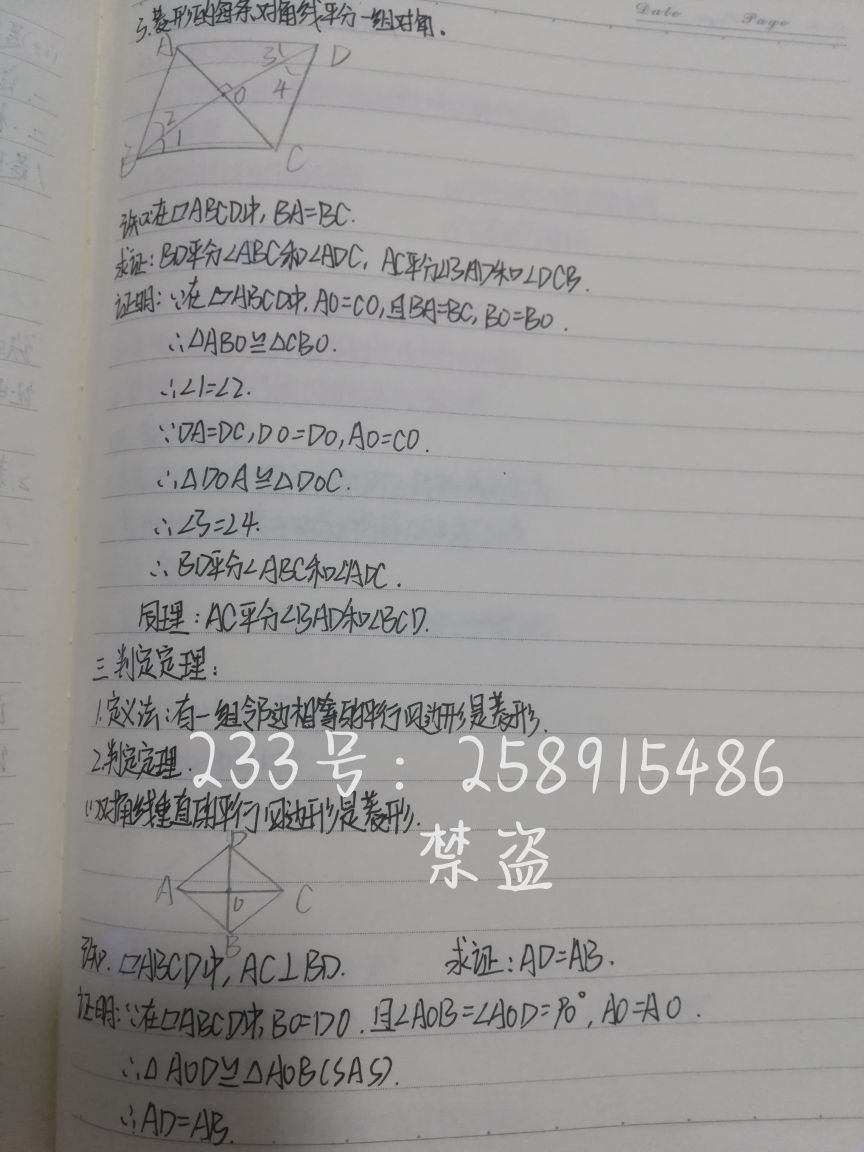 Date Page
3.菱形的每条对角线平分一组对角.
A 3 D
4
O
2
1
B C
已知:在▱ABCD中, BA=BC.
求证:BD平分∠ABC和∠ADC, AC平分∠BAD和∠DCB.
证明:∵在▱ABCD中, AO=CO,且BA=BC, BO=BO.
∴△ABO≌△CBO.
∴∠1=∠2.
∵DA=DC, DO=DO, AO=CO.
∴△DOA≌△DOC.
∴∠3=∠4.
∴BD平分∠ABC和∠ADC.
同理:AC平分∠BAD和∠BCD.
三.判定定理:
1.定义法:有一组邻边相等的平行四边形是菱形.
2.判定定理.
233号: 258915486
(1)对角线垂直的平行四边形是菱形.
禁盗
D
A O C
B
已知.▱ABCD中, AC⊥BD. 求证:AD=AB.
证明:∵在▱ABCD中, BO=DO.且∠AOB=∠AOD=90°, AO=AO.
∴△AOD≌△AOB(SAS).
∴AD=AB.